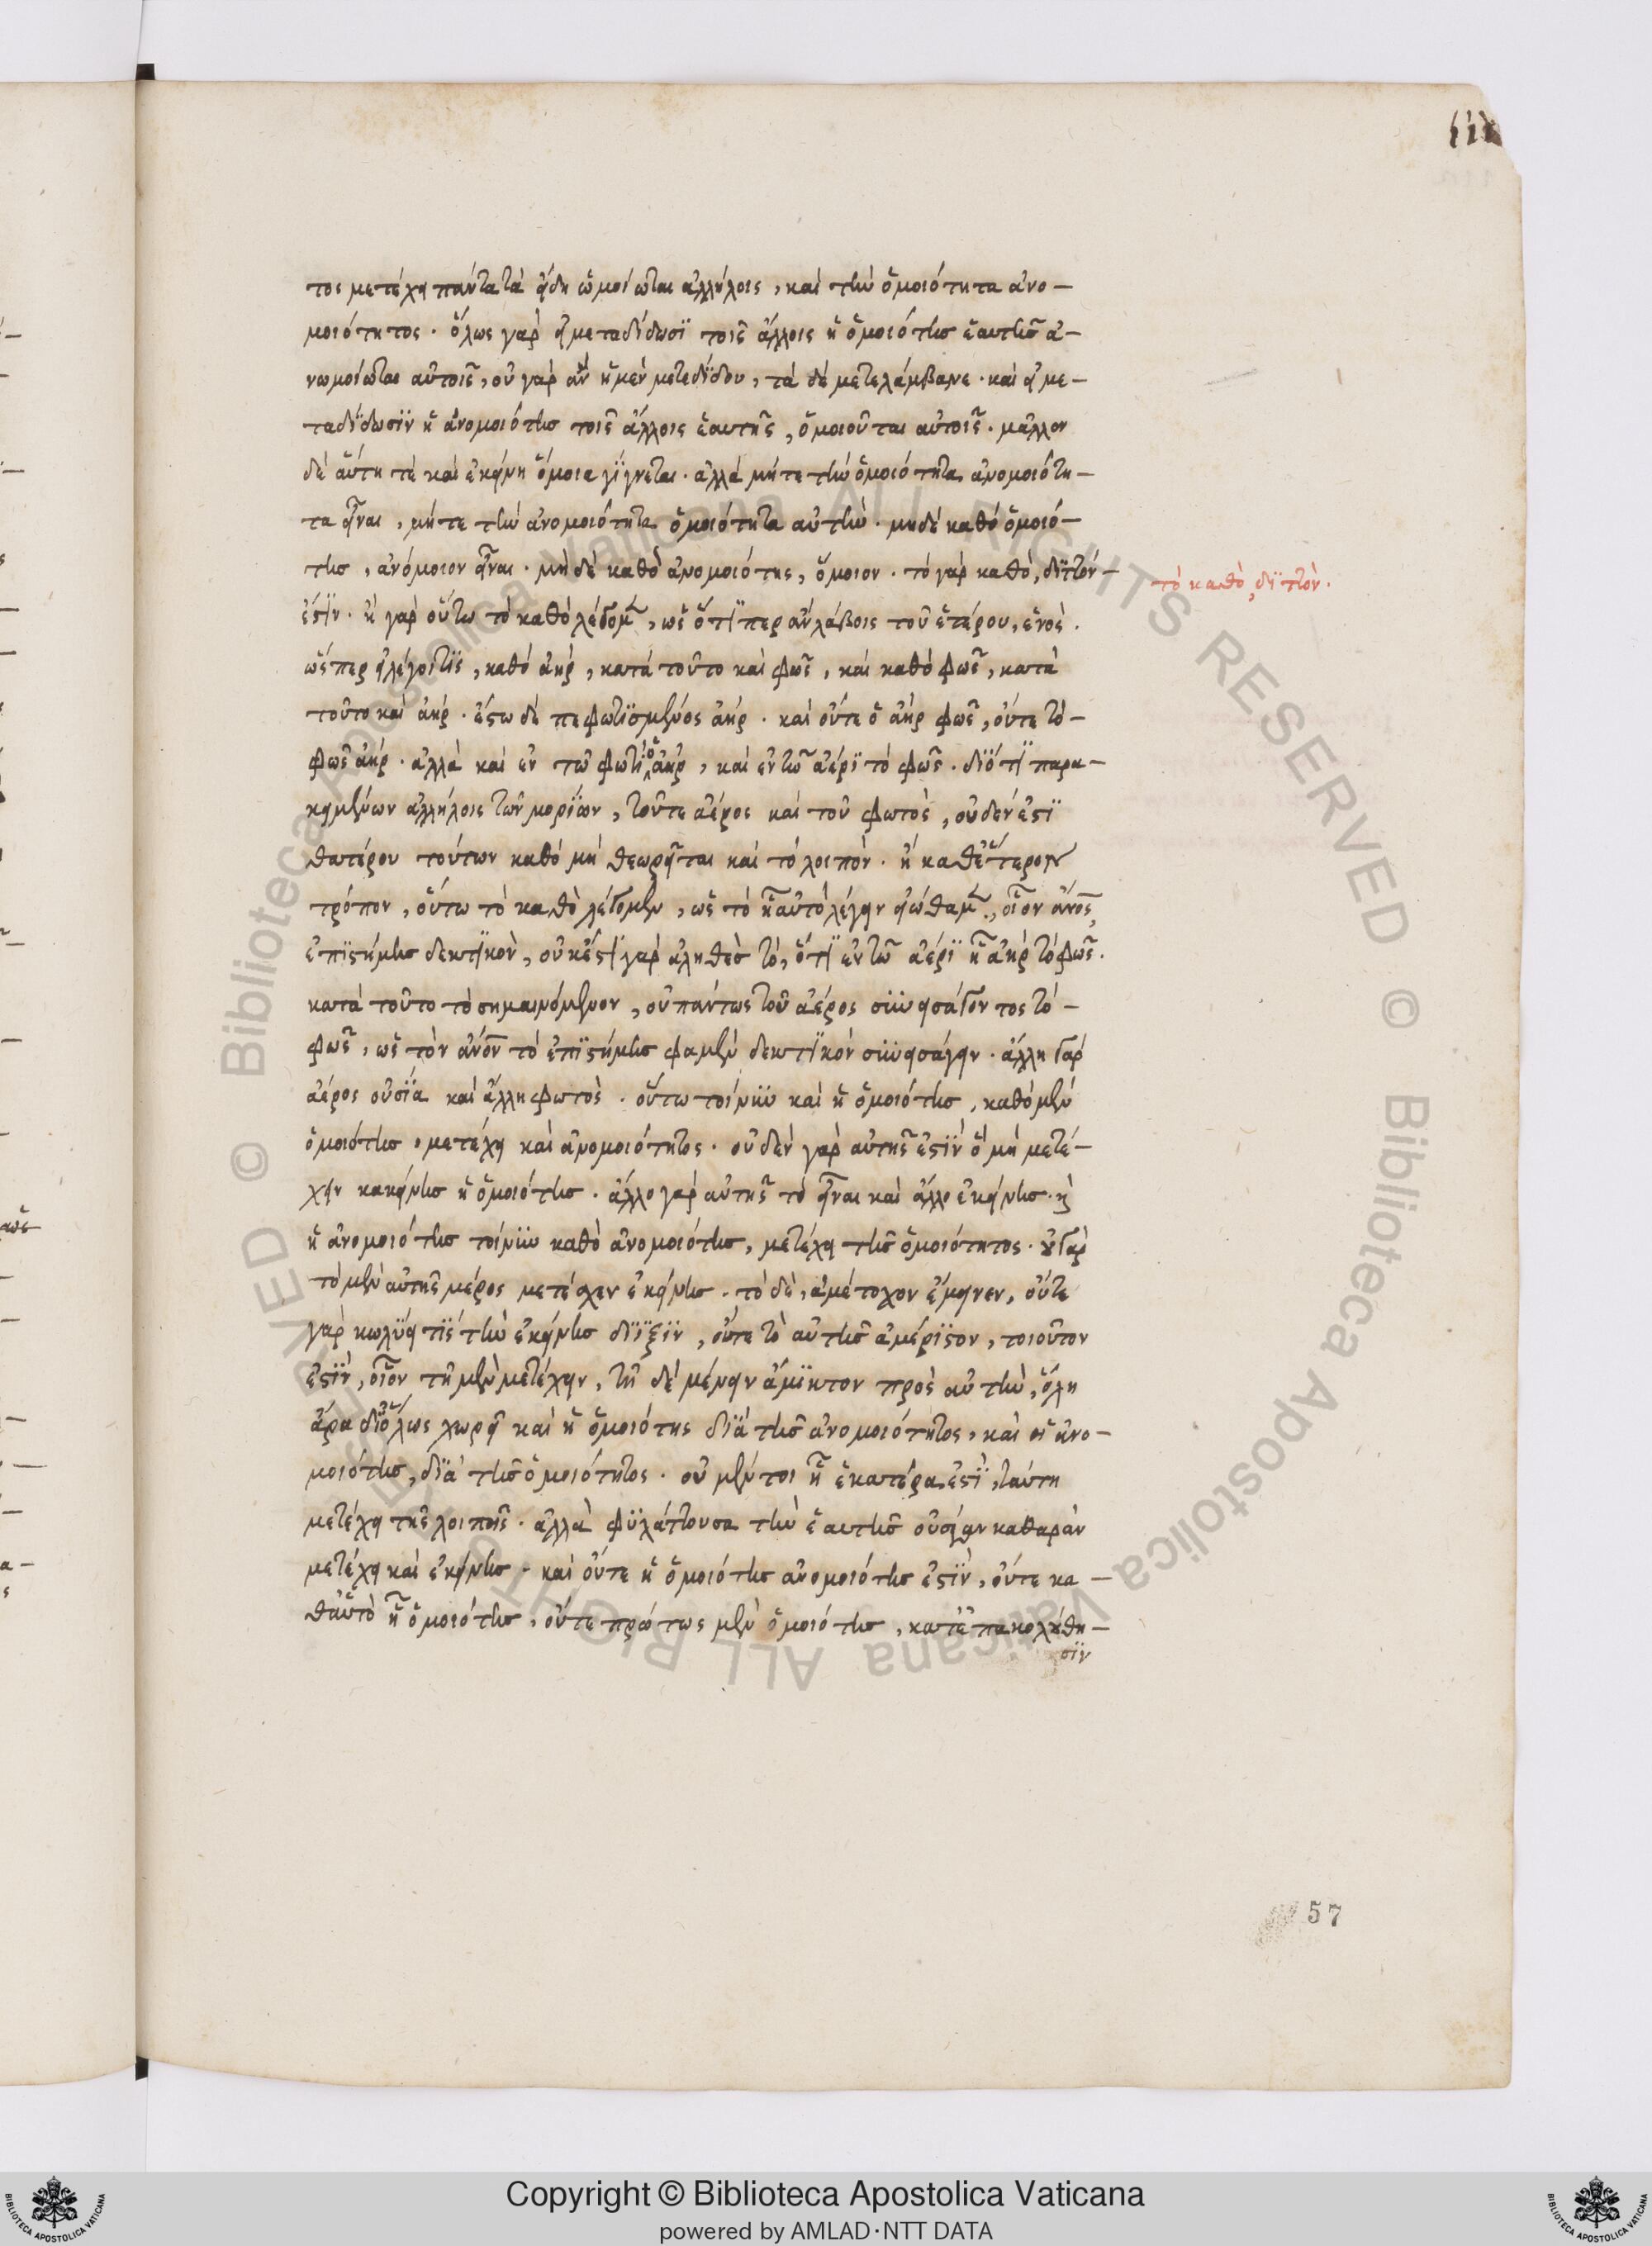 111
τος μετέχει πάντα τὰ εἴδη ὡμοίωται ἀλλήλοις, καὶ τὴν ὁμοιότητα ἀνο–
μοιότητος. ὅλως γὰρ εἰ μεταδίδωσϊ τοῖς ἄλλοις ἡ ὁμοιότης ἑαυτῆς ἀ–
νωμοίωται αὐτοῖς, οὐ γὰρ ἂν ἡ μὲν μετεδίδου, τὰ δὲ μετελάμβανε. καὶ εἰ με–
ταδίδωσϊν ἡ ἀνομοιότης τοῖς ἄλλοις ἑαυτῆς, ὁμοιοῦται αὐτοῖς. μᾶλλον
δὲ αὕτη τὲ καὶ ἐκείνη ὅμοια γίγνεται. ἀλλὰ μήτε τὴν ὁμοιότητα ἀνομοιότη–
τα εἶναι, μήτε τὴν ἀνομοιότητα ὁμοιότητα αὐτὴν. μηδὲ καθὸ ὁμοιό–
της, ἀνόμοιον εἶναι. μὴ δὲ καθὸ ἀνομοιότης, ὅμοιον. τὸ γὰρ καθὸ, διττόν–
τὸ καθὸ, διττὸν.
ἐστϊν. ἢ γὰρ οὕτω τὸ καθὸ λέγομεν, ὡς ὅτϊπερ ἂν λάβοις τοῦ ἑτέρου, ἑνὸς.
ὥσπερ εἰ λέγοι τϊς, καθὸ ἀὴρ, κατὰ τοῦτο καὶ φῶς, καὶ καθὸ φῶς, κατὰ
τοῦτο καὶ ἀὴρ. ἔστω δὲ πεφωτϊσμένος ἀὴρ. καὶ οὔτε ὁ ἀὴρ φῶς, οὔτε τὸ–
φῶς ἀὴρ. ἀλλὰ καὶ ἐν τῷ φωτὶ ὁ ἀὴρ, καὶ ἐν τῷ ἀέρϊ τὸ φῶς. δϊότϊ παρα–
κειμένων ἀλλήλοις τῶν μορίων, τοῦτε ἀέρος καὶ τοῦ φωτὸς, οὐδέν ἐστϊ
θατέρου τούτων καθὸ μὴ θεωρεῖται καὶ τὸ λοιπὸν. ἢ καθ' ἕτερον
τρόπον, οὕτω τὸ καθὸ λέγομεν, ὡς τὸ ᾗ αὐτὸ λέγειν εἰώθαμεν, οἷον ἄνος,
ἐπϊστήμης δεκτϊκὸν, οὐκ ἔστϊ γὰρ ἀληθὲς τὸ, ὅτϊ ἐν τῷ ἀέρϊ ᾗ ἀὴρ τὸ φῶς.
κατὰ τοῦτο τὸ σημαινόμενον, οὐ πάντως τοῦ ἀέρος συνεισάγοντος τὸ–
φῶς, ὡς τὸν ἄνον τὸ ἐπϊστήμης φαμὲν δεκτϊκὸν συνεισάγειν. ἄλλη γὰρ
ἀέρος οὐσία καὶ ἄλλη φωτὸς. οὕτω τοίνυν καὶ ἡ ὁμοιότης, καθὸ μὲν
ὁμοιότης, μετέχει καὶ ἀνομοιότητος. οὐδὲν γὰρ αὐτῆς ἐστϊν ὃ μὴ μετέ–
χειν κἀκείνης ἡ ὁμοιότης. ἄλλο γὰρ αὐτῆς τὸ εἶναι καὶ ἄλλο ἐκείνης. καὶ
ἡ ἀνομοιότης τοίνυν καθὸ ἀνομοιότης, μετέχει τῆς ὁμοιότητος. οὐ γὰρ
τὸ μὲν αὐτῆς μέρος μετέσχεν ἐκείνης. τὸ δὲ, ἀμέτοχον ἔμεινεν, οὔτε
γὰρ κωλύει τϊς τὴν ἐκείνης δϊϊξϊν, οὔτε τὸ αὐτῆς ἀμέρϊστον, τοιοῦτον
ἐστϊν, οἷον τῇ μὲν μετέχειν, τῇ δὲ μένειν ἄμϊκτον πρὸς αὐτὴν, ὅλη
ἄρα δϊ' ὅλως χωρεῖ καὶ ἡ ὁμοιότης δϊὰ τῆς ἀνομοιότητος, καὶ ἡ ἀνο–
μοιότης, δϊὰ τῆς ὁμοιότητος. οὐ μέντοι ᾗ ἑκατέρα ἐστϊ, ταύτη
μετέχει τῆς λοιπῆς. ἀλλὰ φυλάττουσα τὴν ἑαυτῆς οὐσίαν καθαρὰν
μετέχει καὶ ἐκείνης. καὶ οὔτε ἡ ὁμοιότης ἀνομοιότης ἐστϊν, οὔτε κα–
θαὑτὸ ᾗ ὁμοιότης, οὔτε πρώτως μὲν ὁμοιότης, κατ' ἐπακολούθη–
σϊν
57